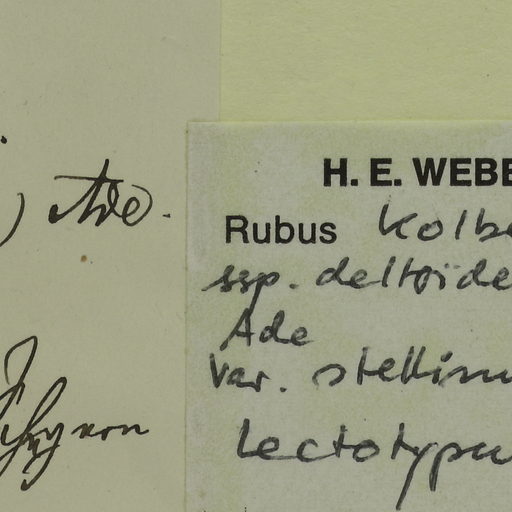 ) Ade.
H. E. WEBE
Rubus Kolbe
ssp. deltoïde
Ade
var. stellinu
Lectotypu